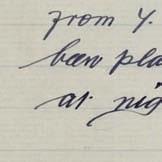 from Y.
been pla
at nig